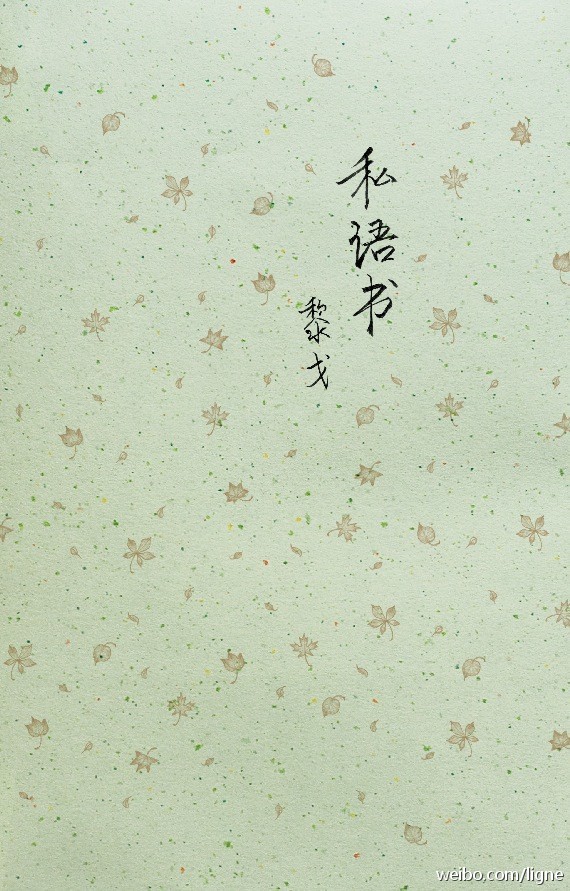 私语书
黎戈
weibo.com/ligne